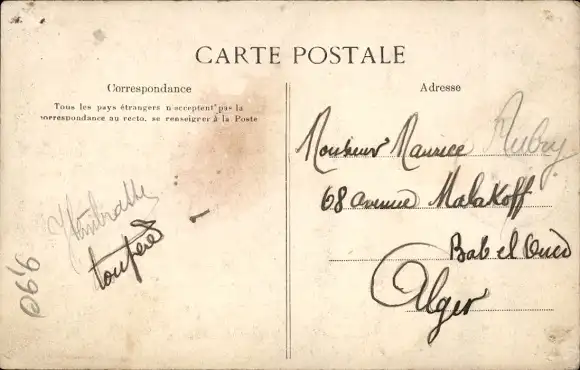 CARTE POSTALE
Correspondance
Tous les pays étrangers n'acceptent pas la
correspondance au recto, se renseigner à la Poste
ton père
Adresse
Monsieur Maurice Aubry
68 avenue Malakoff
Bab el Oued
Alger